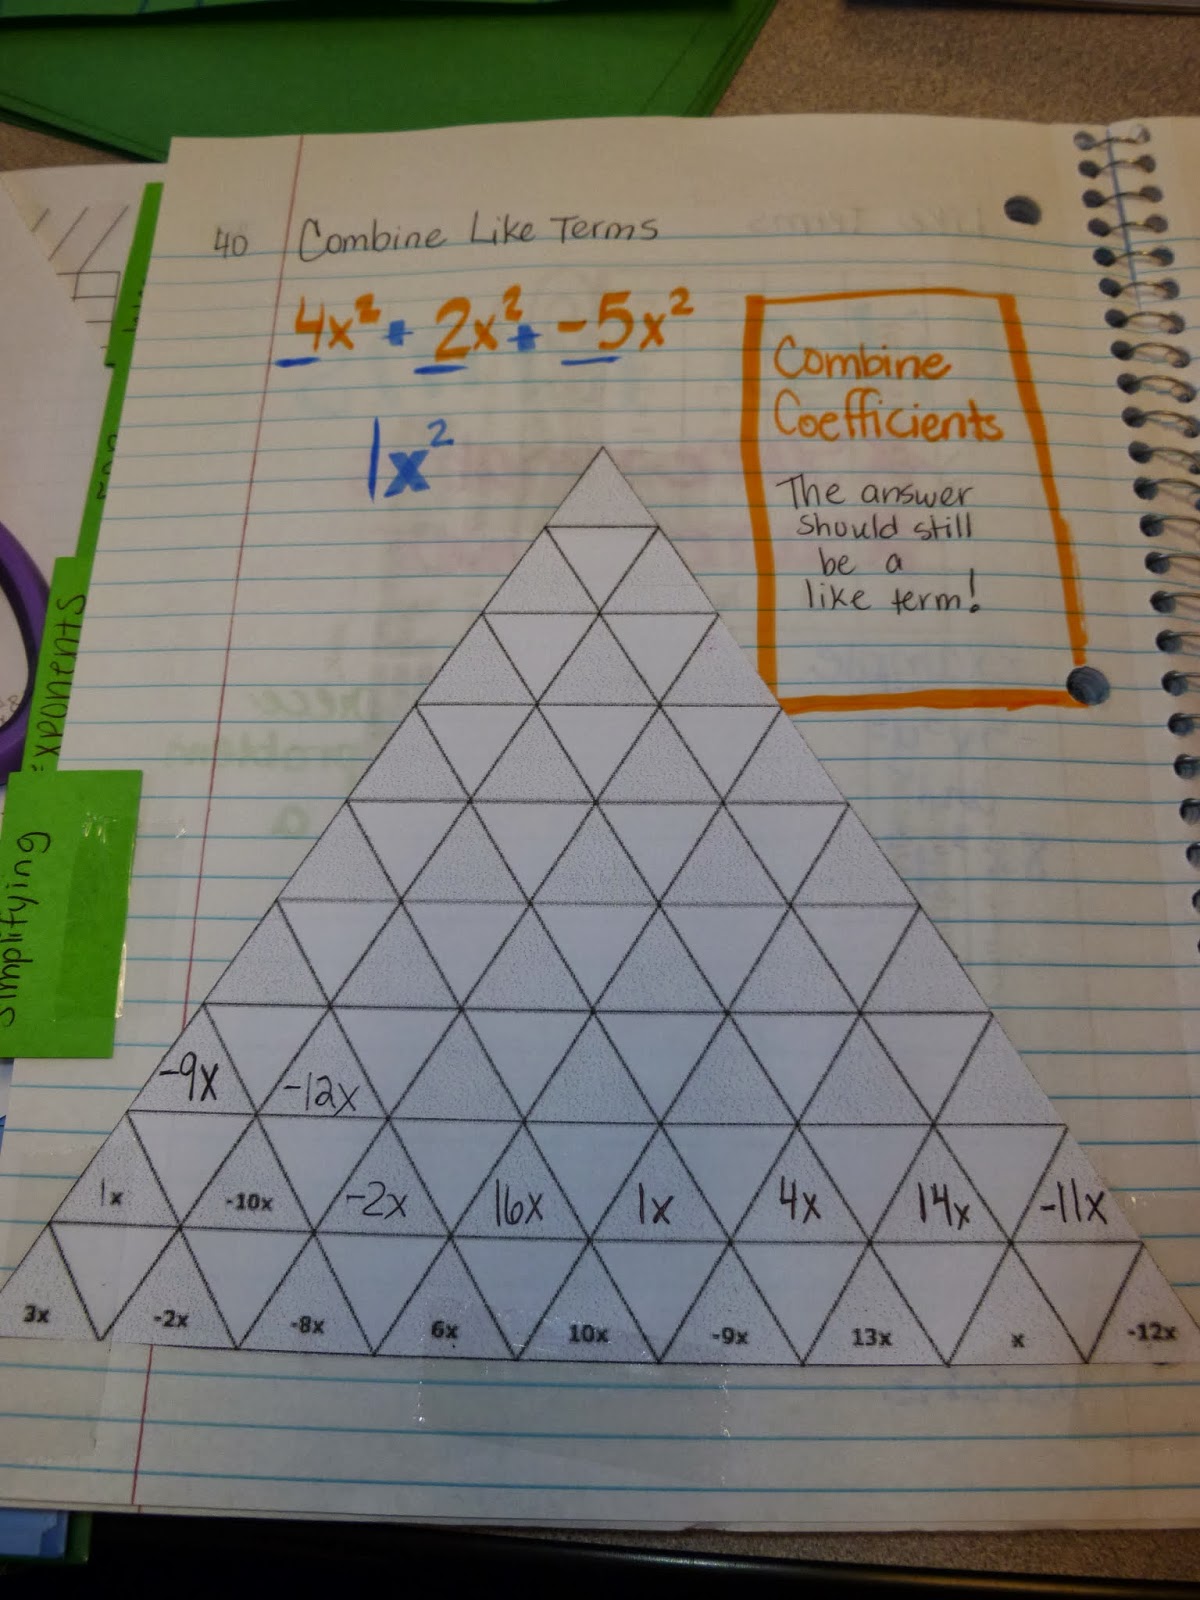 40 Combine Like Terms
4x² + 2x² + -5x²
1x²
Combine
Coefficients
The answer
should still
be a
like term!
exponents
simplifying
-9x -12x
1x -10x -2x 16x 1x 4x 14x -11x
3x -2x -8x 6x 10x -9x 13x x -12x